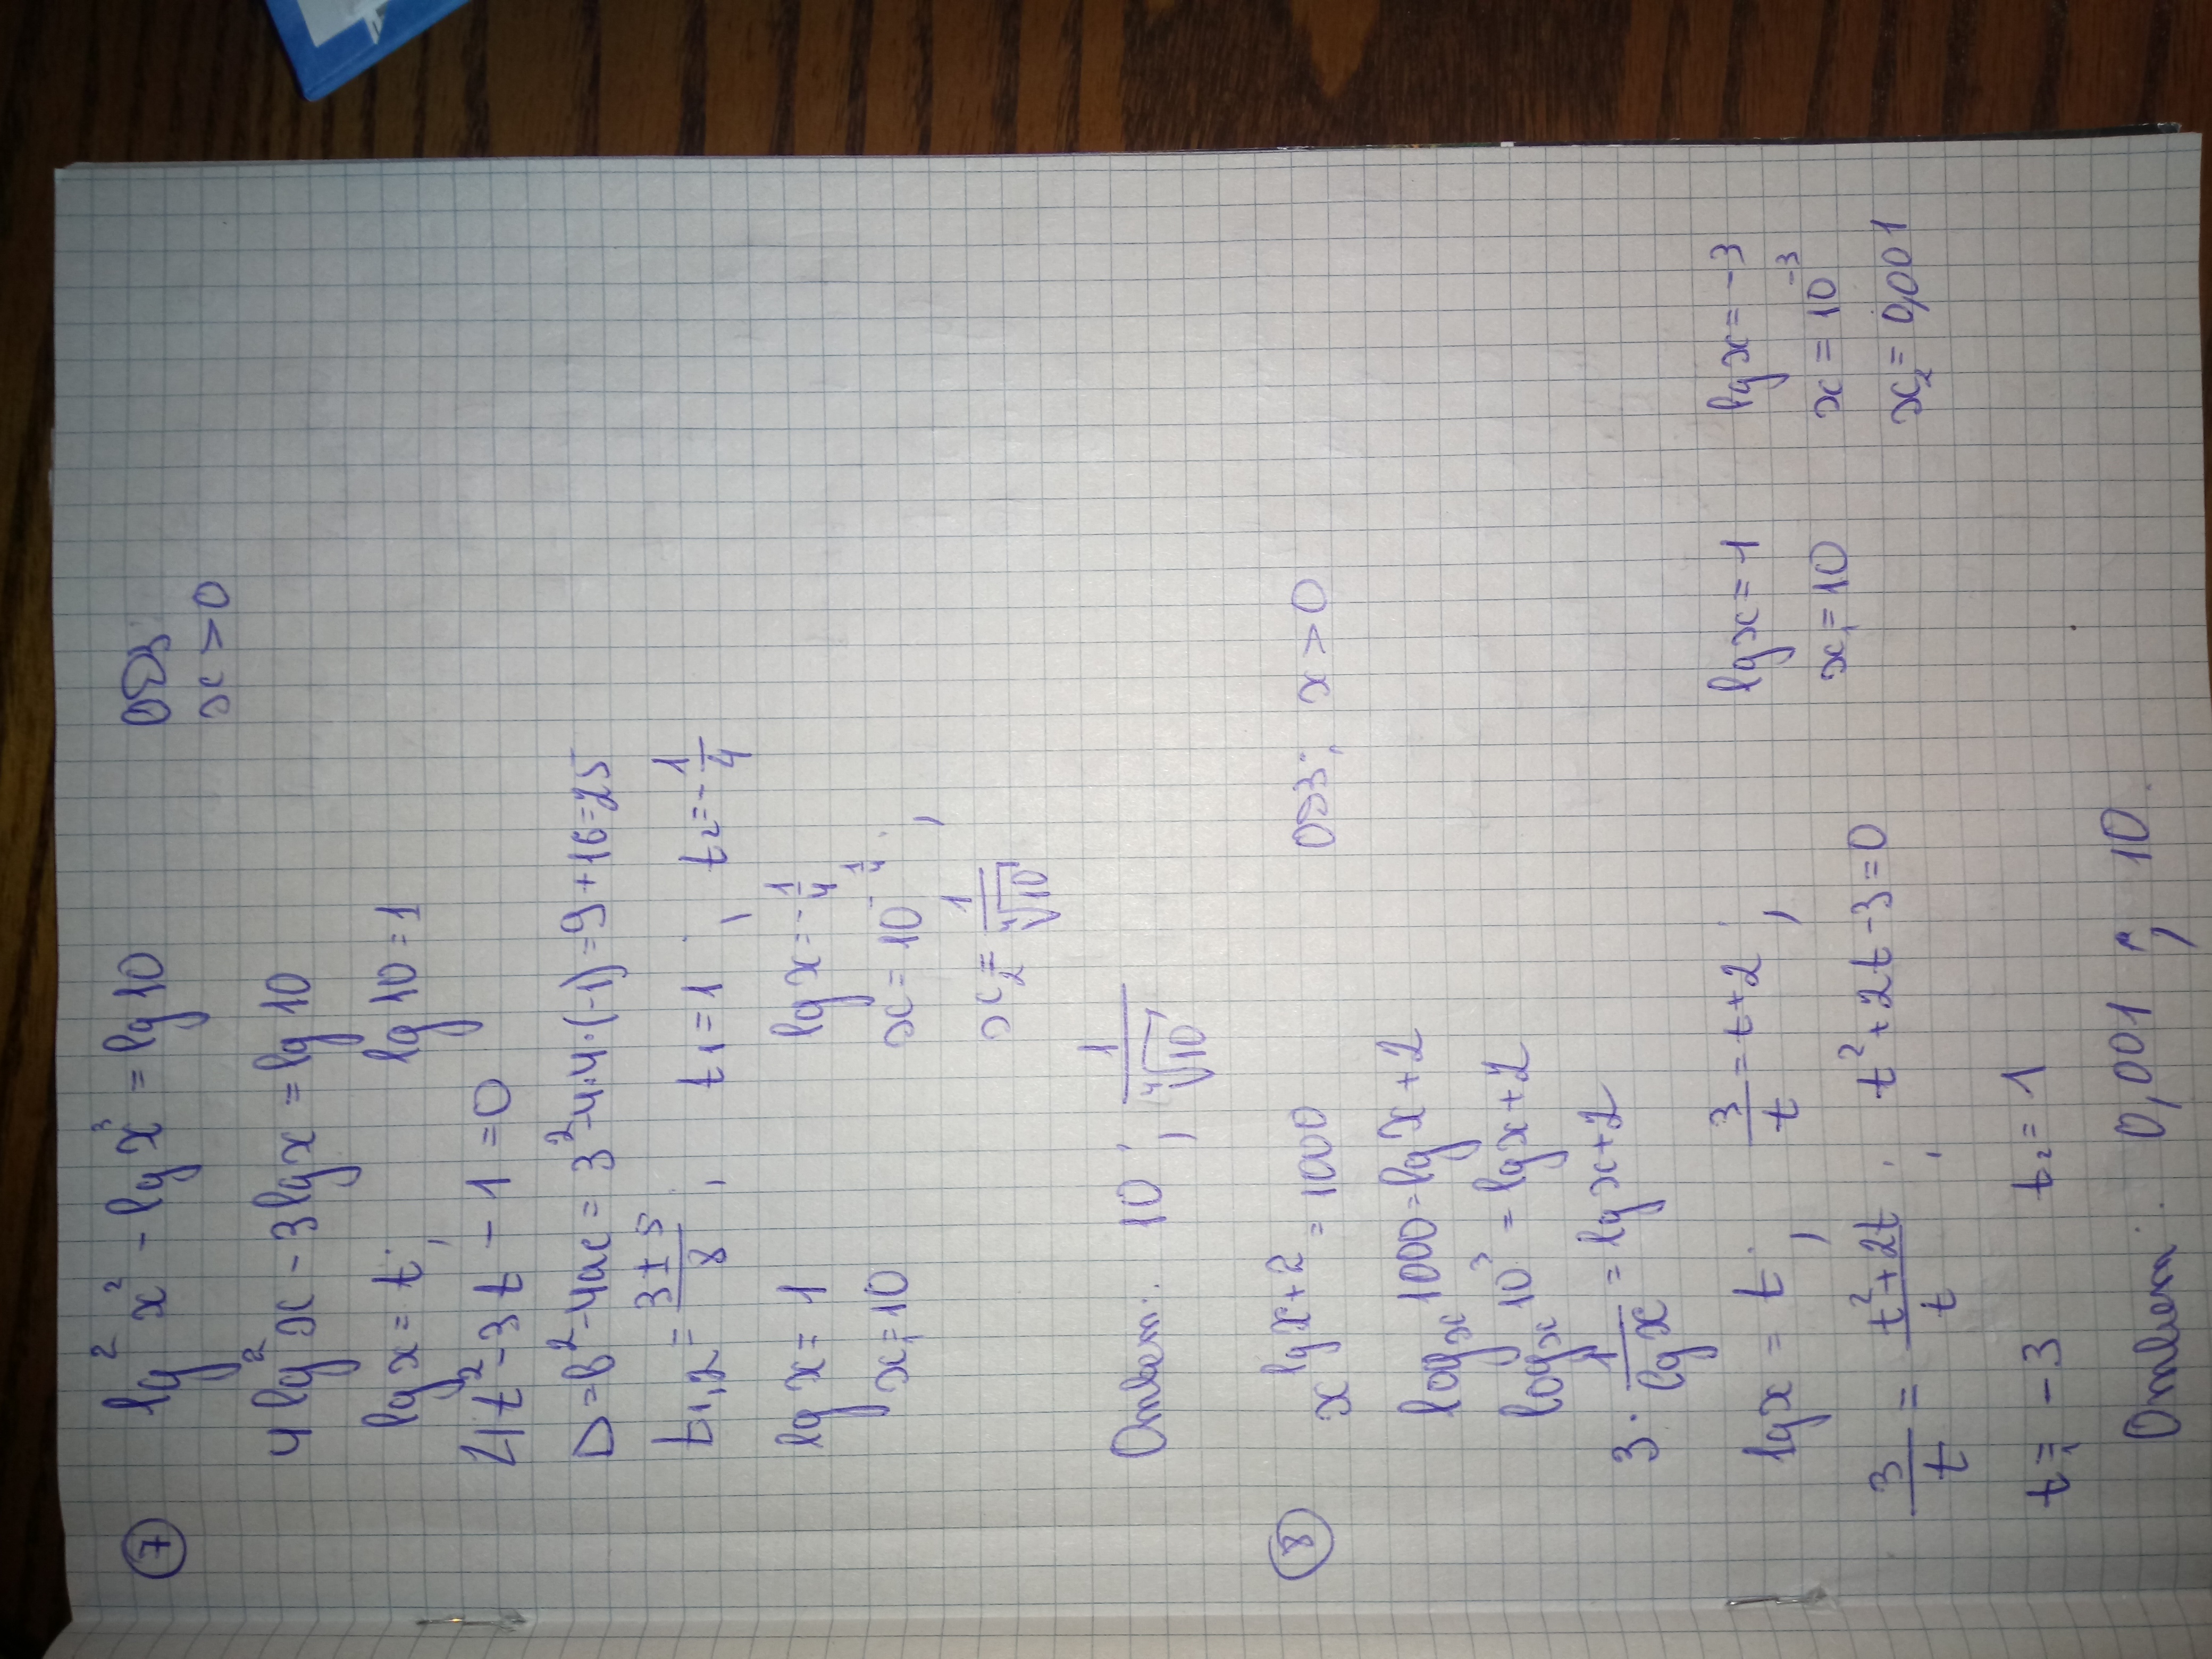 ⑦ lg² x² - lg x³ = lg 10 ОДЗ:
x > 0
4 lg² x - 3 lg x = lg 10
lg x = t; lg 10 = 1
4t² - 3t - 1 = 0
D = в² - 4ac = 3² - 4·4·(-1) = 9 + 16 = 25
t₁,₂ = (3 ± 5)/8; t₁ = 1; t₂ = -1/4
lg x = 1 lg x = -1/4
x₁ = 10 x = 10^(-1/4);
x₂ = 1/⁴√10
Ответ: 10; 1/⁴√10
⑧ x^(lg x + 2) = 1000 ОДЗ: x > 0
logₓ 1000 = lg x + 2
logₓ 10³ = lg x + 2
3 · 1/lg x = lg x + 2
lg x = t; 3/t = t + 2; lg x = 1 lg x = -3
3/t = (t² + 2t)/t; t² + 2t - 3 = 0 x₁ = 10 x = 10⁻³
t₁ = -3 t₂ = 1 x₂ = 0,001
Ответ: 0,001; 10.